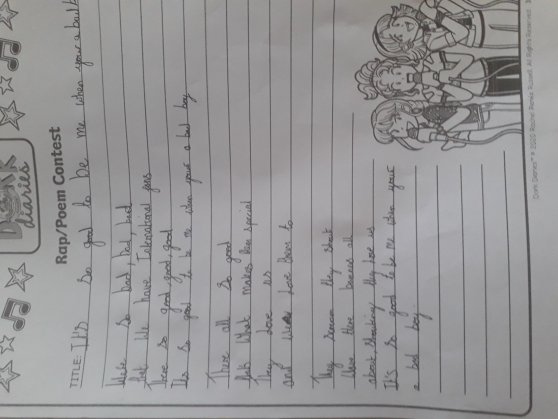 DORK
diaries
Rap/Poem Contest
TITLE: It's so good to be me when your a bad
We're so bad, bad, bad
that We have International fans
There so good, good, good
It's so good to be me when your a bad boy
There all so good
thats What makes them special
They Love us
and We Love them to
They scream they shout
there There banners all
about shouting they love us
It's so good to be me when your
a bad boy.
Dork Diaries™ © 2010 Rachel Renée Russell. All Rights Reserved.